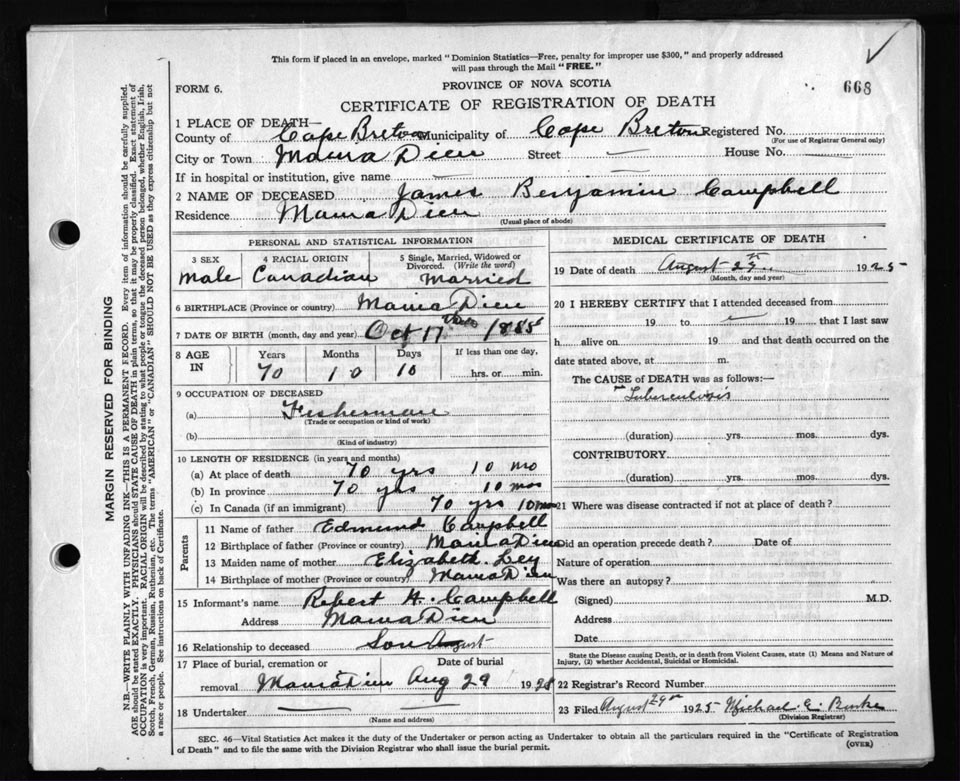 This form if placed in an envelope, marked "Dominion Statistics—Free, penalty for improper use $300," and properly addressed
will pass through the Mail "FREE."
FORM 6.
PROVINCE OF NOVA SCOTIA
668
CERTIFICATE OF REGISTRATION OF DEATH
1 PLACE OF DEATH—
County of Cape Breton Municipality of Cape Breton Registered No.
(For use of Registrar General only)
City or Town Maina Dieu Street — House No. —
If in hospital or institution, give name —
2 NAME OF DECEASED James Benjamin Campbell
Residence Maina Dieu
(Usual place of abode)
PERSONAL AND STATISTICAL INFORMATION
3 SEX 4 RACIAL ORIGIN 5 Single, Married, Widowed or Divorced. (Write the word)
Male Canadian Married
6 BIRTHPLACE (Province or country) Maina Dieu
7 DATE OF BIRTH (month, day and year) Oct 17 1855
8 AGE IN Years Months Days If less than one day,
70 10 10 hrs. or min.
9 OCCUPATION OF DECEASED
(a) Fisherman
(Trade or occupation or kind of work)
(b)
(Kind of industry)
10 LENGTH OF RESIDENCE (in years and months)
(a) At place of death 70 yrs 10 mo
(b) In province 70 yrs 10 mos
(c) In Canada (if an immigrant) 70 yrs 10 mos
Parents
11 Name of father Edmund Campbell
12 Birthplace of father (Province or country) Maina Dieu
13 Maiden name of mother Elizabeth
14 Birthplace of mother (Province or country) Maina Dieu
15 Informant's name Robert H. Campbell
Address Maina Dieu
16 Relationship to deceased Son August
17 Place of burial, cremation or Date of burial
removal Mainadieu Aug 29 1925
18 Undertaker — —
(Name and address)
MEDICAL CERTIFICATE OF DEATH
19 Date of death August 27th 1925
(Month, day and year)
20 I HEREBY CERTIFY that I attended deceased from
19 to — 19 that I last saw
h alive on 19 and that death occurred on the
date stated above, at m.
The CAUSE of DEATH was as follows:—
Tuberculosis
(duration) yrs. mos. dys.
CONTRIBUTORY
(duration) yrs. mos. dys.
21 Where was disease contracted if not at place of death?
Did an operation precede death? Date of
Nature of operation
Was there an autopsy?
(Signed) M.D.
Address
Date
State the Disease causing Death, or in death from Violent Causes, state (1) Means and Nature of
Injury, (2) whether Accidental, Suicidal or Homicidal.
22 Registrar's Record Number
23 Filed August 29th 1925 Michael E. Burke
(Division Registrar)
SEC. 46—Vital Statistics Act makes it the duty of the Undertaker or person acting as Undertaker to obtain all the particulars required in the "Certificate of Registration
of Death" and to file the same with the Division Registrar who shall issue the burial permit.
(OVER)
MARGIN RESERVED FOR BINDING
N.B.—WRITE PLAINLY WITH UNFADING INK—THIS IS A PERMANENT RECORD. Every item of information should be carefully supplied.
AGE should be stated EXACTLY. PHYSICIANS should STATE CAUSE OF DEATH in plain terms, so that it may be properly classified. Exact statement of
OCCUPATION is very important. RACIAL ORIGIN will be described by stating to what people or tongue the deceased person belonged, whether English, Irish,
Scotch, French, German, Russian, Ruthenian, etc. The terms "AMERICAN" or "CANADIAN" SHOULD NOT BE USED as they express citizenship but not
a race or people. See instructions on back of Certificate.